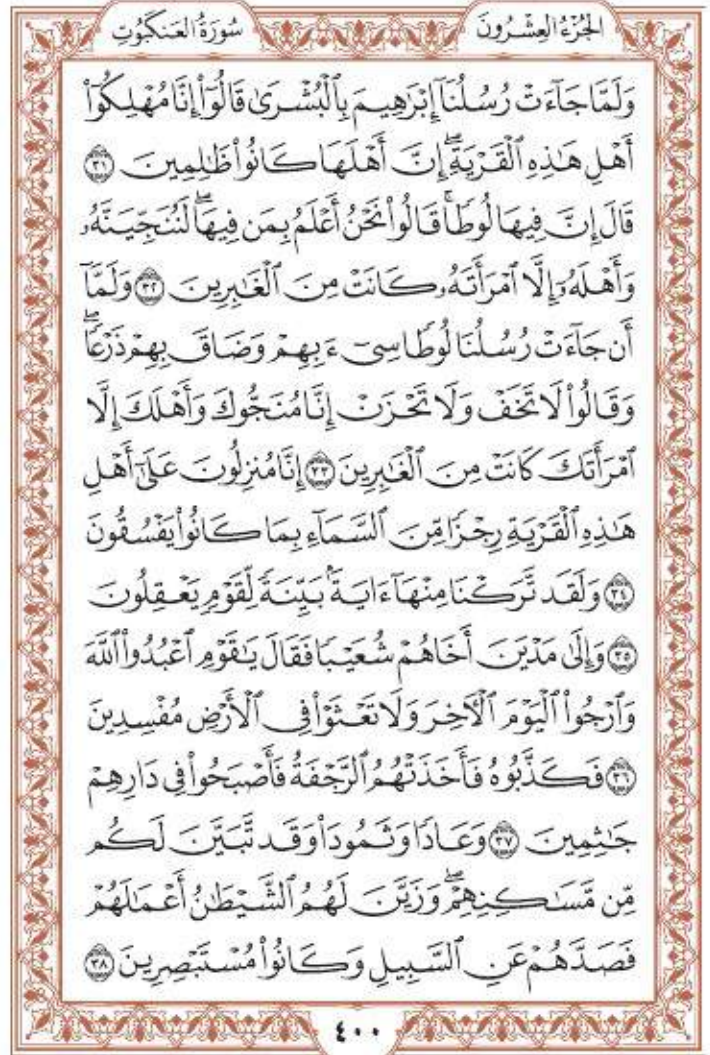 الجُزْءُ العِشْرُونَ سُورَةُ العَنكَبُوتِ
وَلَمَّا جَآءَتْ رُسُلُنَآ إِبْرَٰهِيمَ بِٱلْبُشْرَىٰ قَالُوٓا۟ إِنَّا مُهْلِكُوٓا۟
أَهْلِ هَـٰذِهِ ٱلْقَرْيَةِ ۖ إِنَّ أَهْلَهَا كَانُوا۟ ظَـٰلِمِينَ ٣١
قَالَ إِنَّ فِيهَا لُوطًا ۚ قَالُوا۟ نَحْنُ أَعْلَمُ بِمَن فِيهَا ۖ لَنُنَجِّيَنَّهُۥ
وَأَهْلَهُۥٓ إِلَّا ٱمْرَأَتَهُۥ كَانَتْ مِنَ ٱلْغَـٰبِرِينَ ٣٢ وَلَمَّآ
أَن جَآءَتْ رُسُلُنَا لُوطًا سِىٓءَ بِهِمْ وَضَاقَ بِهِمْ ذَرْعًا ۖ
وَقَالُوا۟ لَا تَخَفْ وَلَا تَحْزَنْ إِنَّا مُنَجُّوكَ وَأَهْلَكَ إِلَّا
ٱمْرَأَتَكَ كَانَتْ مِنَ ٱلْغَـٰبِرِينَ ٣٣ إِنَّا مُنزِلُونَ عَلَىٰٓ أَهْلِ
هَـٰذِهِ ٱلْقَرْيَةِ رِجْزًا مِّنَ ٱلسَّمَآءِ بِمَا كَانُوا۟ يَفْسُقُونَ
٣٤ وَلَقَد تَّرَكْنَا مِنْهَآ ءَايَةًۢ بَيِّنَةً لِّقَوْمٍ يَعْقِلُونَ
٣٥ وَإِلَىٰ مَدْيَنَ أَخَاهُمْ شُعَيْبًا فَقَالَ يَـٰقَوْمِ ٱعْبُدُوا۟ ٱللَّهَ
وَٱرْجُوا۟ ٱلْيَوْمَ ٱلْـَٔاخِرَ وَلَا تَعْثَوْا۟ فِى ٱلْأَرْضِ مُفْسِدِينَ
٣٦ فَكَذَّبُوهُ فَأَخَذَتْهُمُ ٱلرَّجْفَةُ فَأَصْبَحُوا۟ فِى دَارِهِمْ
جَـٰثِمِينَ ٣٧ وَعَادًا وَثَمُودَا۟ وَقَد تَّبَيَّنَ لَكُم
مِّن مَّسَـٰكِنِهِمْ ۖ وَزَيَّنَ لَهُمُ ٱلشَّيْطَـٰنُ أَعْمَـٰلَهُمْ
فَصَدَّهُمْ عَنِ ٱلسَّبِيلِ وَكَانُوا۟ مُسْتَبْصِرِينَ ٣٨
٤٠٠